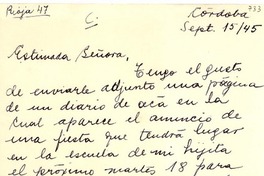 Rioja 47
C.
Córdoba
Sept. 15/45
733
Estimada Señora,
Tengo el gusto
de enviarle adjunto una página
de un diario de acá en la
cual aparece el anuncio de
una fiesta que tendrá lugar
en la escuela de mi hijita
el próximo martes 18 para